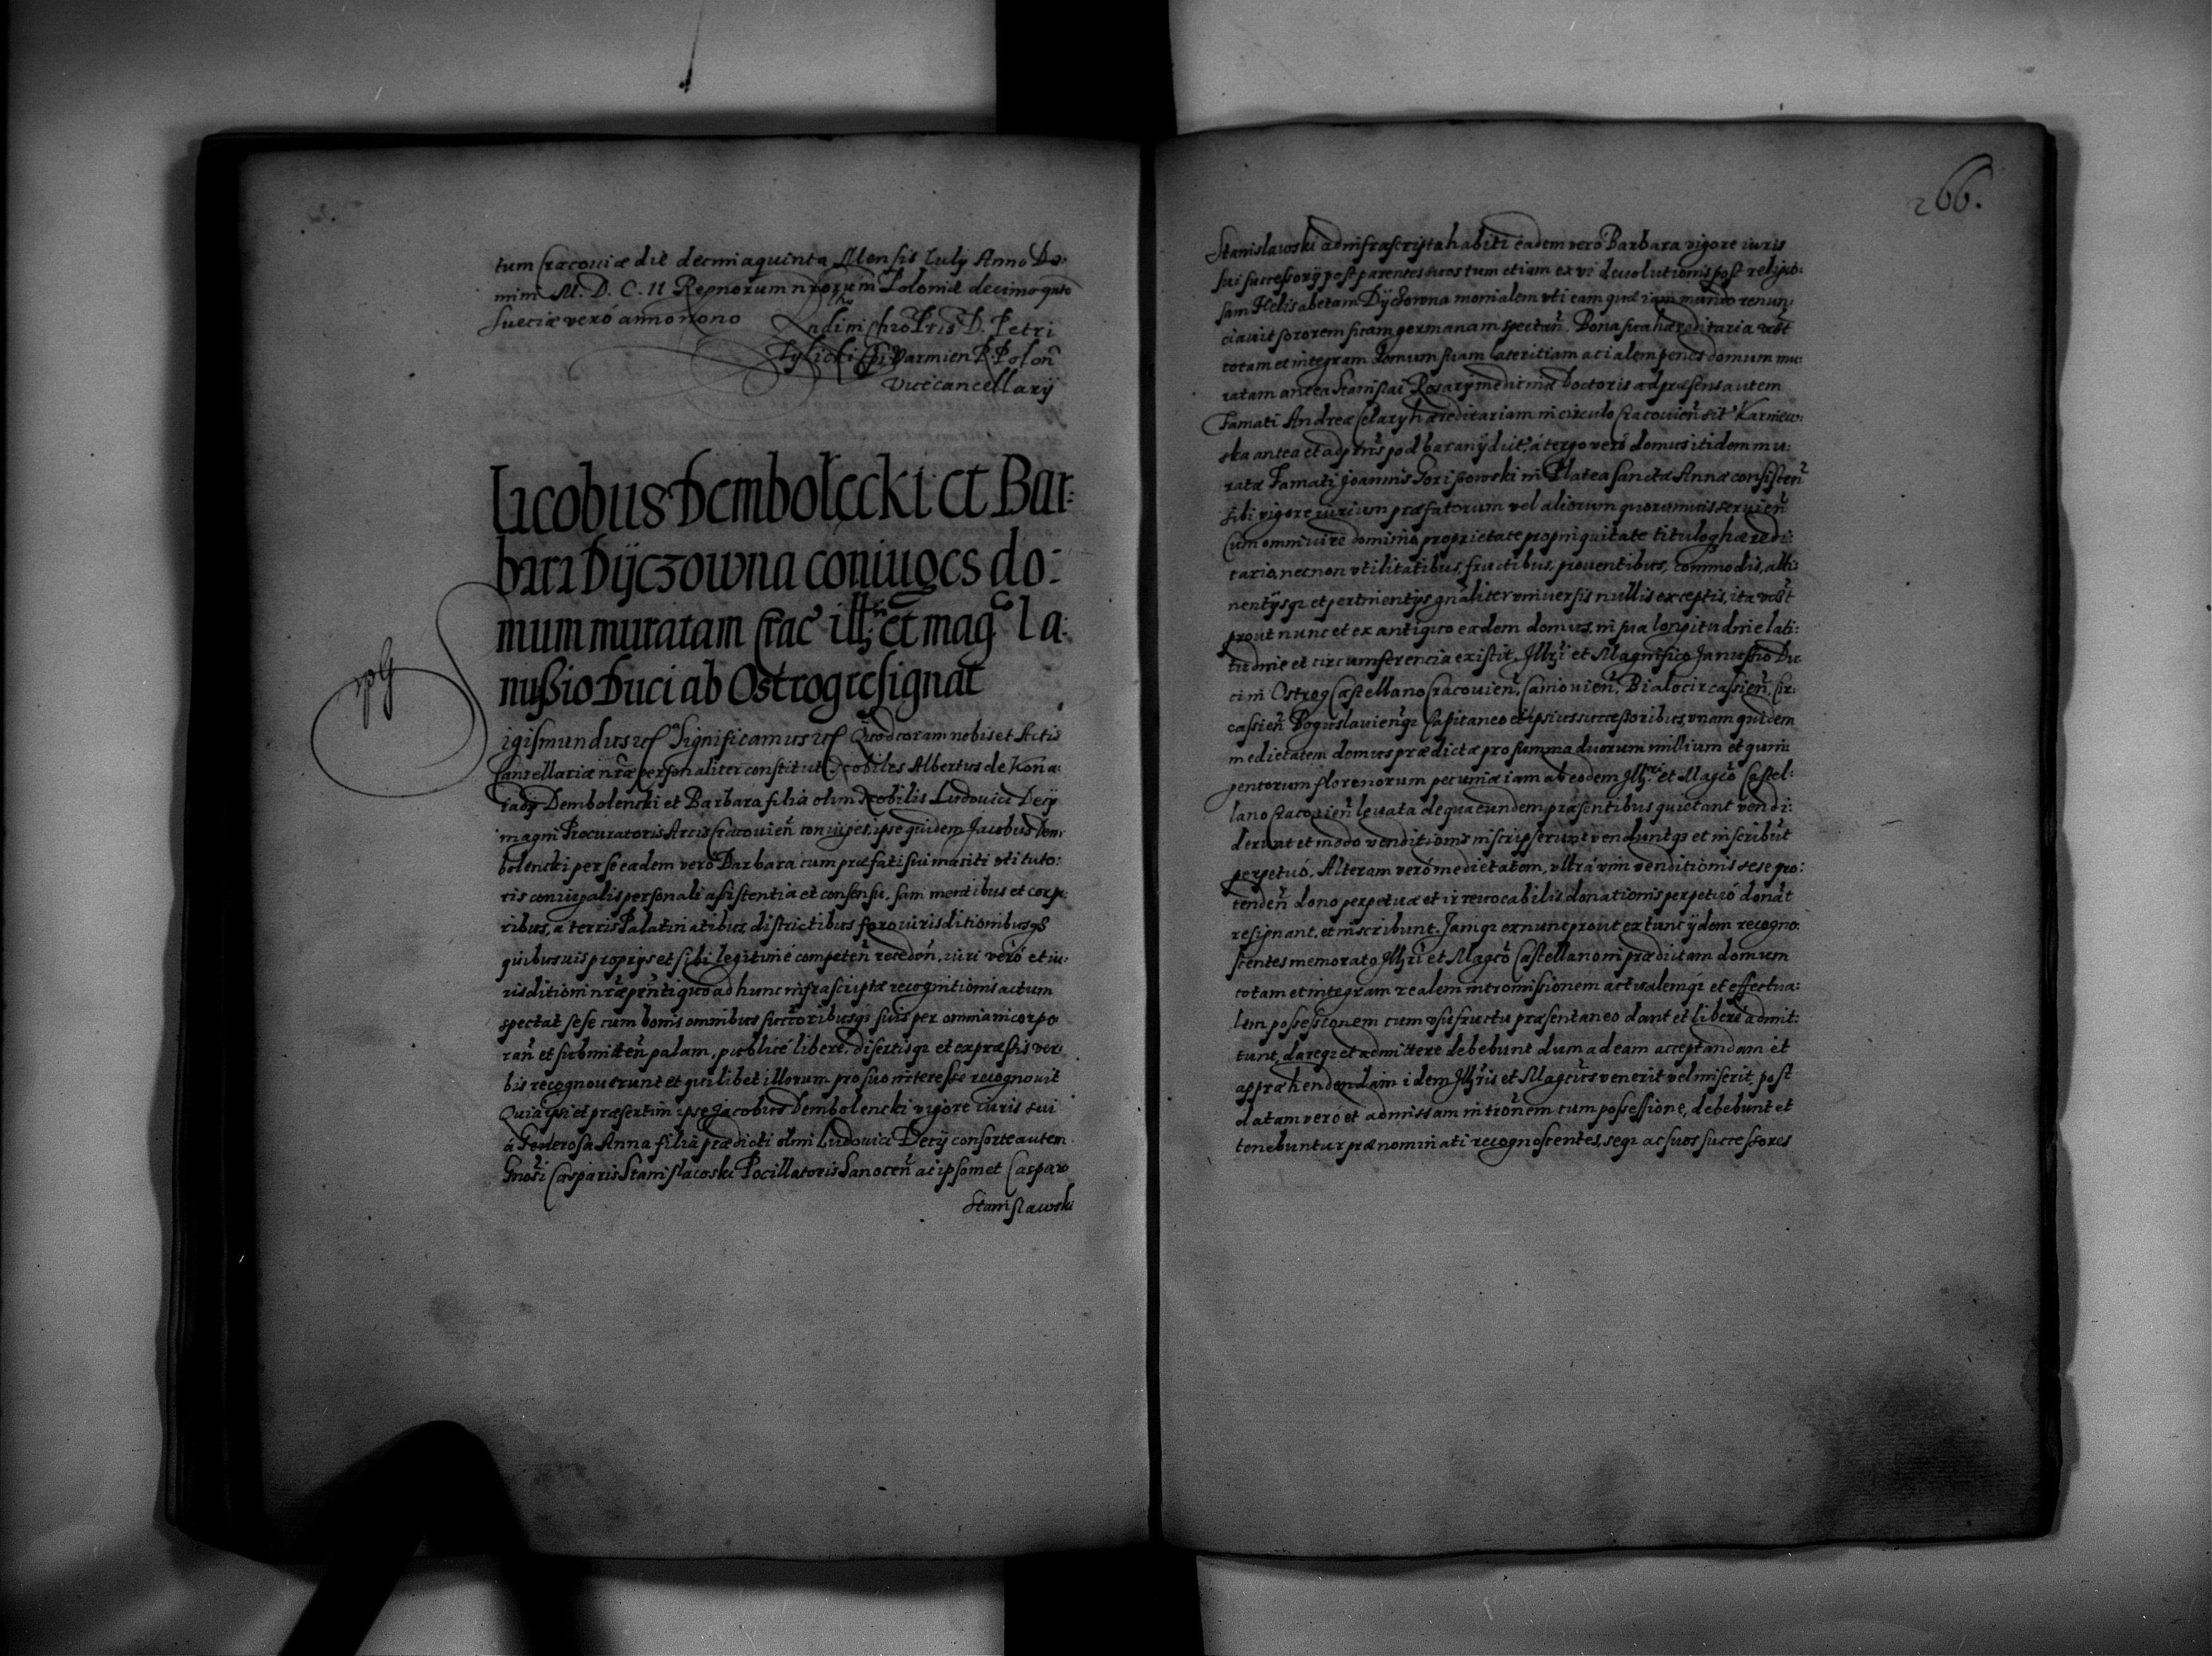 tum Cracouiæ die decimaquinta Mensis Iuly Anno Do:
mini M. D. C. II Regnorum nrorum Poloniæ decimoqnto
Sueciæ vero anno nono
D. Petri
Tylicki Varmien R. Polon
Vicecancellarij
Iacobus Dembołęcki et Bar:
bara Dÿczowna coniuges do:
mum muratam Crac illri et magco Ia:
nußio Duci ab Ostrog resignat
igismundus Significamus Quod coram nobis et Actis
Cancellariæ nræ personaliter constituti Nobiles Albertus de Kona:
Dembolencki et Barbara filia olim Nobilis Ludouici Decÿ
magni Procuratoris Arcis Cracouien coniuges, ipse quidem Jacobus Dem:
bolencki per se eadem vero Barbara cum præfati sui mariti vti tuto:
ris coniugalis personali assistentia et consensu, sani mentibus et corpo:
ribus, a terris Palatinatibus, districtibus foro iurisditionibusqz
quibusuis proprÿs et sibi legitimé competen receden, iuri veró et iu:
risditioni nræ pnti quo ad hunc infrascriptæ recognitionis actum
spectat sese cum bonis omnibus succoribusqz suis per omnia incorpo:
ran et submitten palam, publicé liberé, disertisqz et expræssis ver:
bis recognouerunt et quilibet illorum pro suo interesse recognouit
Quia ipsi et præsertim ipse Jacobus Dembolencki vigore iuris sui
á Generosa Anna filia prædicti olim Ludouici Decÿ consorte autem
Gnosi Casparis Stanislawski Pocillatoris Sanocen ac ipsomet Caspar
Stanislawski
266.
Stanislawski ad infrascripta habiti eadem vero Barbara vigore iuris
sui successorÿ post parentes suos tum etiam ex vi deuolutionis post religio:
sam Helisabetam Dÿczowna monialem vti eam quæ iam mundo renun:
ciauit sororem suam germanam spectan. Bona sua hæreditaria vzt
totam et integram Domum suam lateritiam acialem penes domum mu:
ratam antea Stanislai Rosarÿ medicinæ Doctoris ad præsens autem
Famati Andreæ Celary hæreditariam in circulo Cracouien sit Karniow:
ska antea et ad pns pod baranÿ dict, á tergo veró domus itidem mu:
ratæ Famati Joannis in Platea sanctæ Annæ consisten
sibi vigore iurium præfatorum vel aliorum quorumuis seruien
Cum omni iure dominio proprietate propinquitate tituloqz hæredi:
tario, necnon vtilitatibus, fructibus, prouentibus, commodis, atti:
nentÿsqz et pertinentÿs gnaliter vniuersis nullis exceptis, ita vast
prout nunc et ex antiquo eadem domus, in sua longitudine lati:
tudine et circumferencia existit, Jllri et Magnifico Janussio Du:
ci in Ostrog Castellano Cracouien, Caniouien, Bialocircassien, Cir:
cassien Boguslauienqz Capitaneo et ipsius successoribus, vnam quidem
medietatem domus prædictæ pro summa duorum millium et quin:
gentorum florenorum pecuniæ iam ab eodem Jllri et Magco Castel:
lano Cracouien leuata de qua eundem præsentibus quietant vendi:
derunt et modo venditionis inscripserunt venduntqz et inscribut
perpetuó. Alteram veró medietatem, vltra vim venditionis sese pro:
tenden dono perpetuæ et irreuocabilis donationis perpetuó donat
resignant, et inscribunt. Jamqz ex nunc prout ex tunc ÿdem recogno:
scentes memorato Jllri et Magco Castellano in prædictam domum
totam et integram realem intromissionem actualemqz et effectua:
lem possessionem cum vsufructu præsentaneo dant et liberé admit:
tunt, dareqz et admittere debebunt dum ad eam acceptandam et
appræhendendam idem Jllris et Magcus venerit vel miserit, post
datam veró et admissam intronem cum possessione, debebunt et
tenebuntur prænominati recognoscentes, seqz ac suos successores